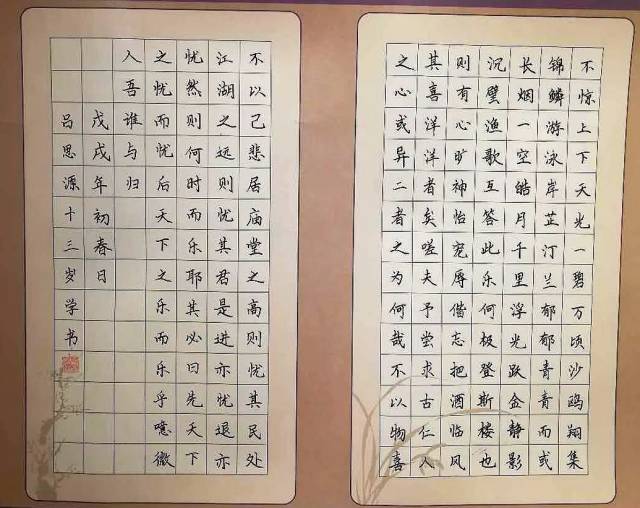 不惊上下天光一碧万顷沙鸥翔集
锦鳞游泳岸芷汀兰郁郁青青而或
长烟一空皓月千里浮光跃金静影
沉璧渔歌互答此乐何极登斯楼也
则有心旷神怡宠辱偕忘把酒临风
其喜洋洋者矣嗟夫予尝求古仁人
之心或异二者之为何哉不以物喜
不以己悲居庙堂之高则忧其民处
江湖之远则忧其君是进亦忧退亦
忧然则何时而乐耶其必曰先天下
之忧而忧后天下之乐而乐乎噫微
人吾谁与归
戊戌年初春日
吕思源十三岁学书